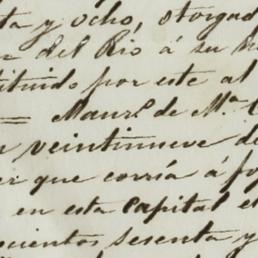 ta y ocho, otorgad
del Rio á su
tituido por este al
= Maurl. de Ma.
veintinueve de
er que corría á fo
en esta capital e
cientos sesenta y